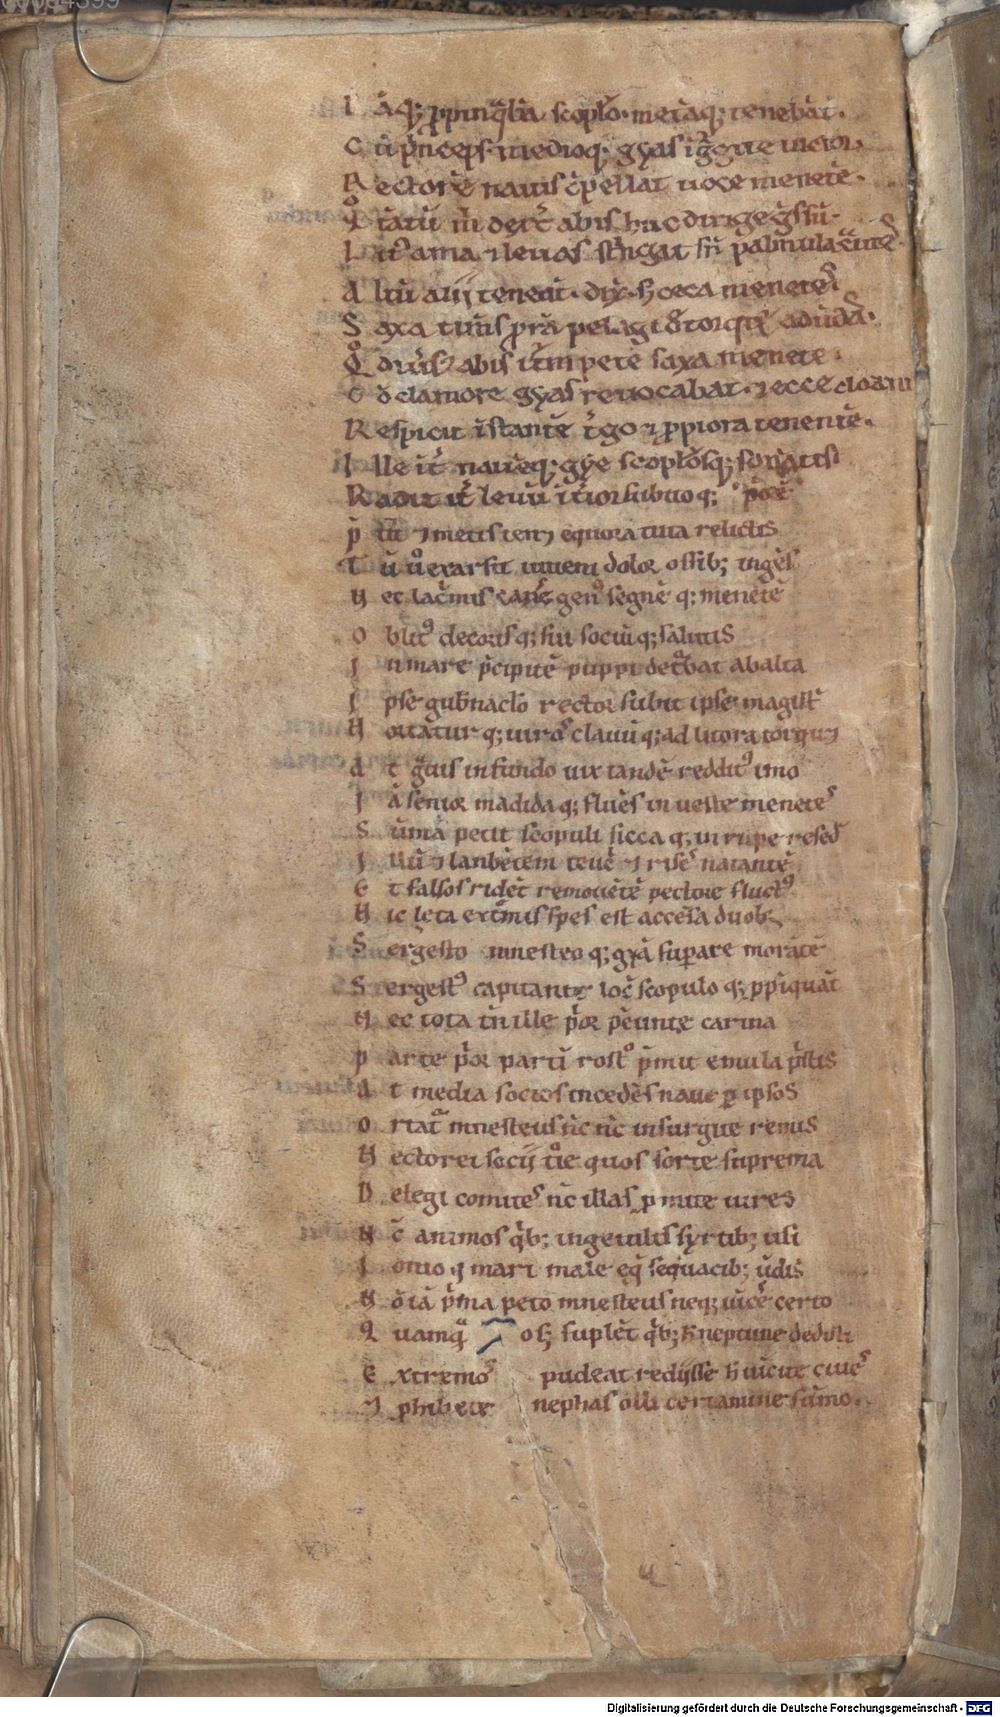 I āq; ꝓpinq̄bāt scoplo· metāq; tenebāt·
C ū p̄nceps medioq; gyas ī ḡgite uictor
R ectorē nauis cōpellat uoce menetē·
Q° tātū m̄ dext̄ abis huc dirige ḡssū·
L it⁹ ama ⁊ leuas st̄ngat sn̄ palmula cautes
A ltū alij teneāt· dix̄· s; ceca menetes
S axa timēs p̄rā pelagi
Q° diūs⁹ abis it̄m pete saxa menete·
C ū clamore gyas reuocabat· ⁊ ecce cloantū
R espicit īstantē t̄go ⁊ ꝓpiora tenentē·
I lle īt̄ nauēq; gye scoplosq; sonātis
R adit it̄ leuū īt̄ior subitoq; p̄orē
P̄ t̄it ⁊ metis ten⁊ equora tuta relictis
T ū u̇ exarsit iuueni dolor ossib; ingēs
N ec lac̄mis
gen⁹ segnē q; menetē
O blit⁹ decorisq; sui sociū q; salutis
I n mare p̄cipitē puppi det̄bat ab alta
I pse gub̄naclo rector subit ipse magist̄
H ortatur q; uiros clauū q; ad litora torqu⁊
A t ḡuis in fundo uix tandē reddit⁹ imo
I ā senior madida q; fluēs in ueste menetes
S ūmā petit scopuli sicca q; in rupe resed̄
I llū ⁊ labētem teuc̄ ⁊ risē natantē
E t salsos ridēt remouētē pectore fluct⁹
H ic leta ext̄mis spes est accēsa duob;
S ergesto mnesteo q; gyā supare morātē
S ergest⁹ capit ante loc̄ scopulo q; ꝓpīquāt
N ec tota t̄n ille p̄or p̄eunte carina
P arte p̄or partū rost° p̄mit emula p̄stis
A t media socios incedēs naue p ipsos
O rtat̄ mnesteus nc̄ nc̄ insurgite remis
H ectorei socij t°ie quos sorte suprema
D elegi comites nc̄ illas ꝓmite uires
N c̄ animos q̄b; in getulis syrtib; usi
I onio q mari maleeq; sequacib; ūdis
N ō iā p̄ma peto mnesteus neq; uīcē certo
Q uamq̄ os; supēt q̄b; h̄ neptune dedisti
E xtremos pudeat redijsse h̄ uīcite ciues
⁊ phibete nephas olli certamine sūmo·
Digitalisierung gefördert durch die Deutsche Forschungsgemeinschaft - DFG